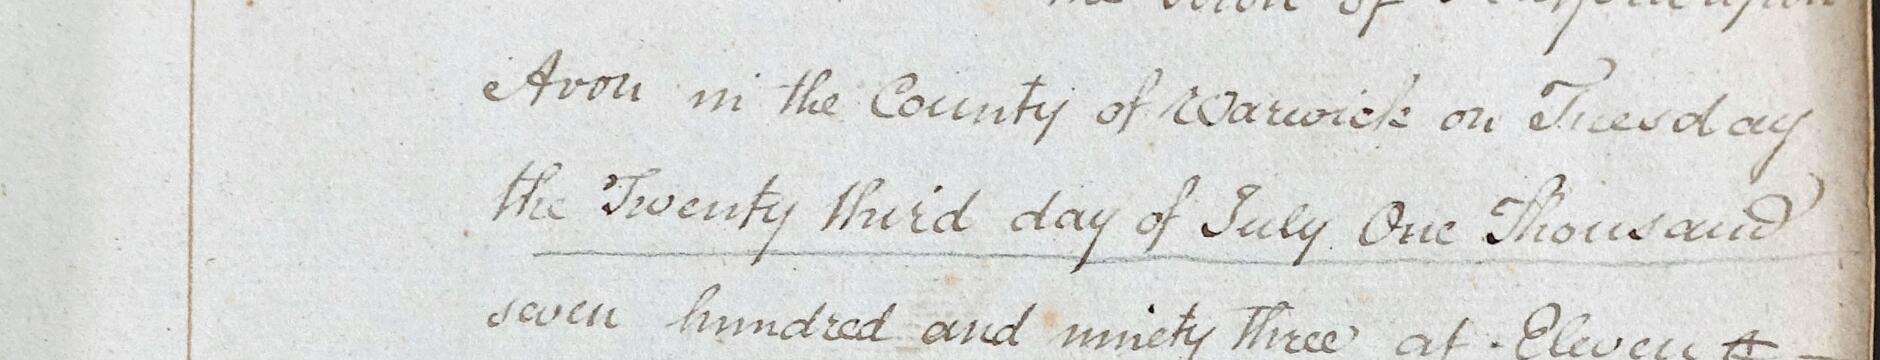 the Town of Stratford upon
Avon in the County of Warwick on Tuesday
the Twenty third day of July One Thousand
seven hundred and ninety three at Eleven